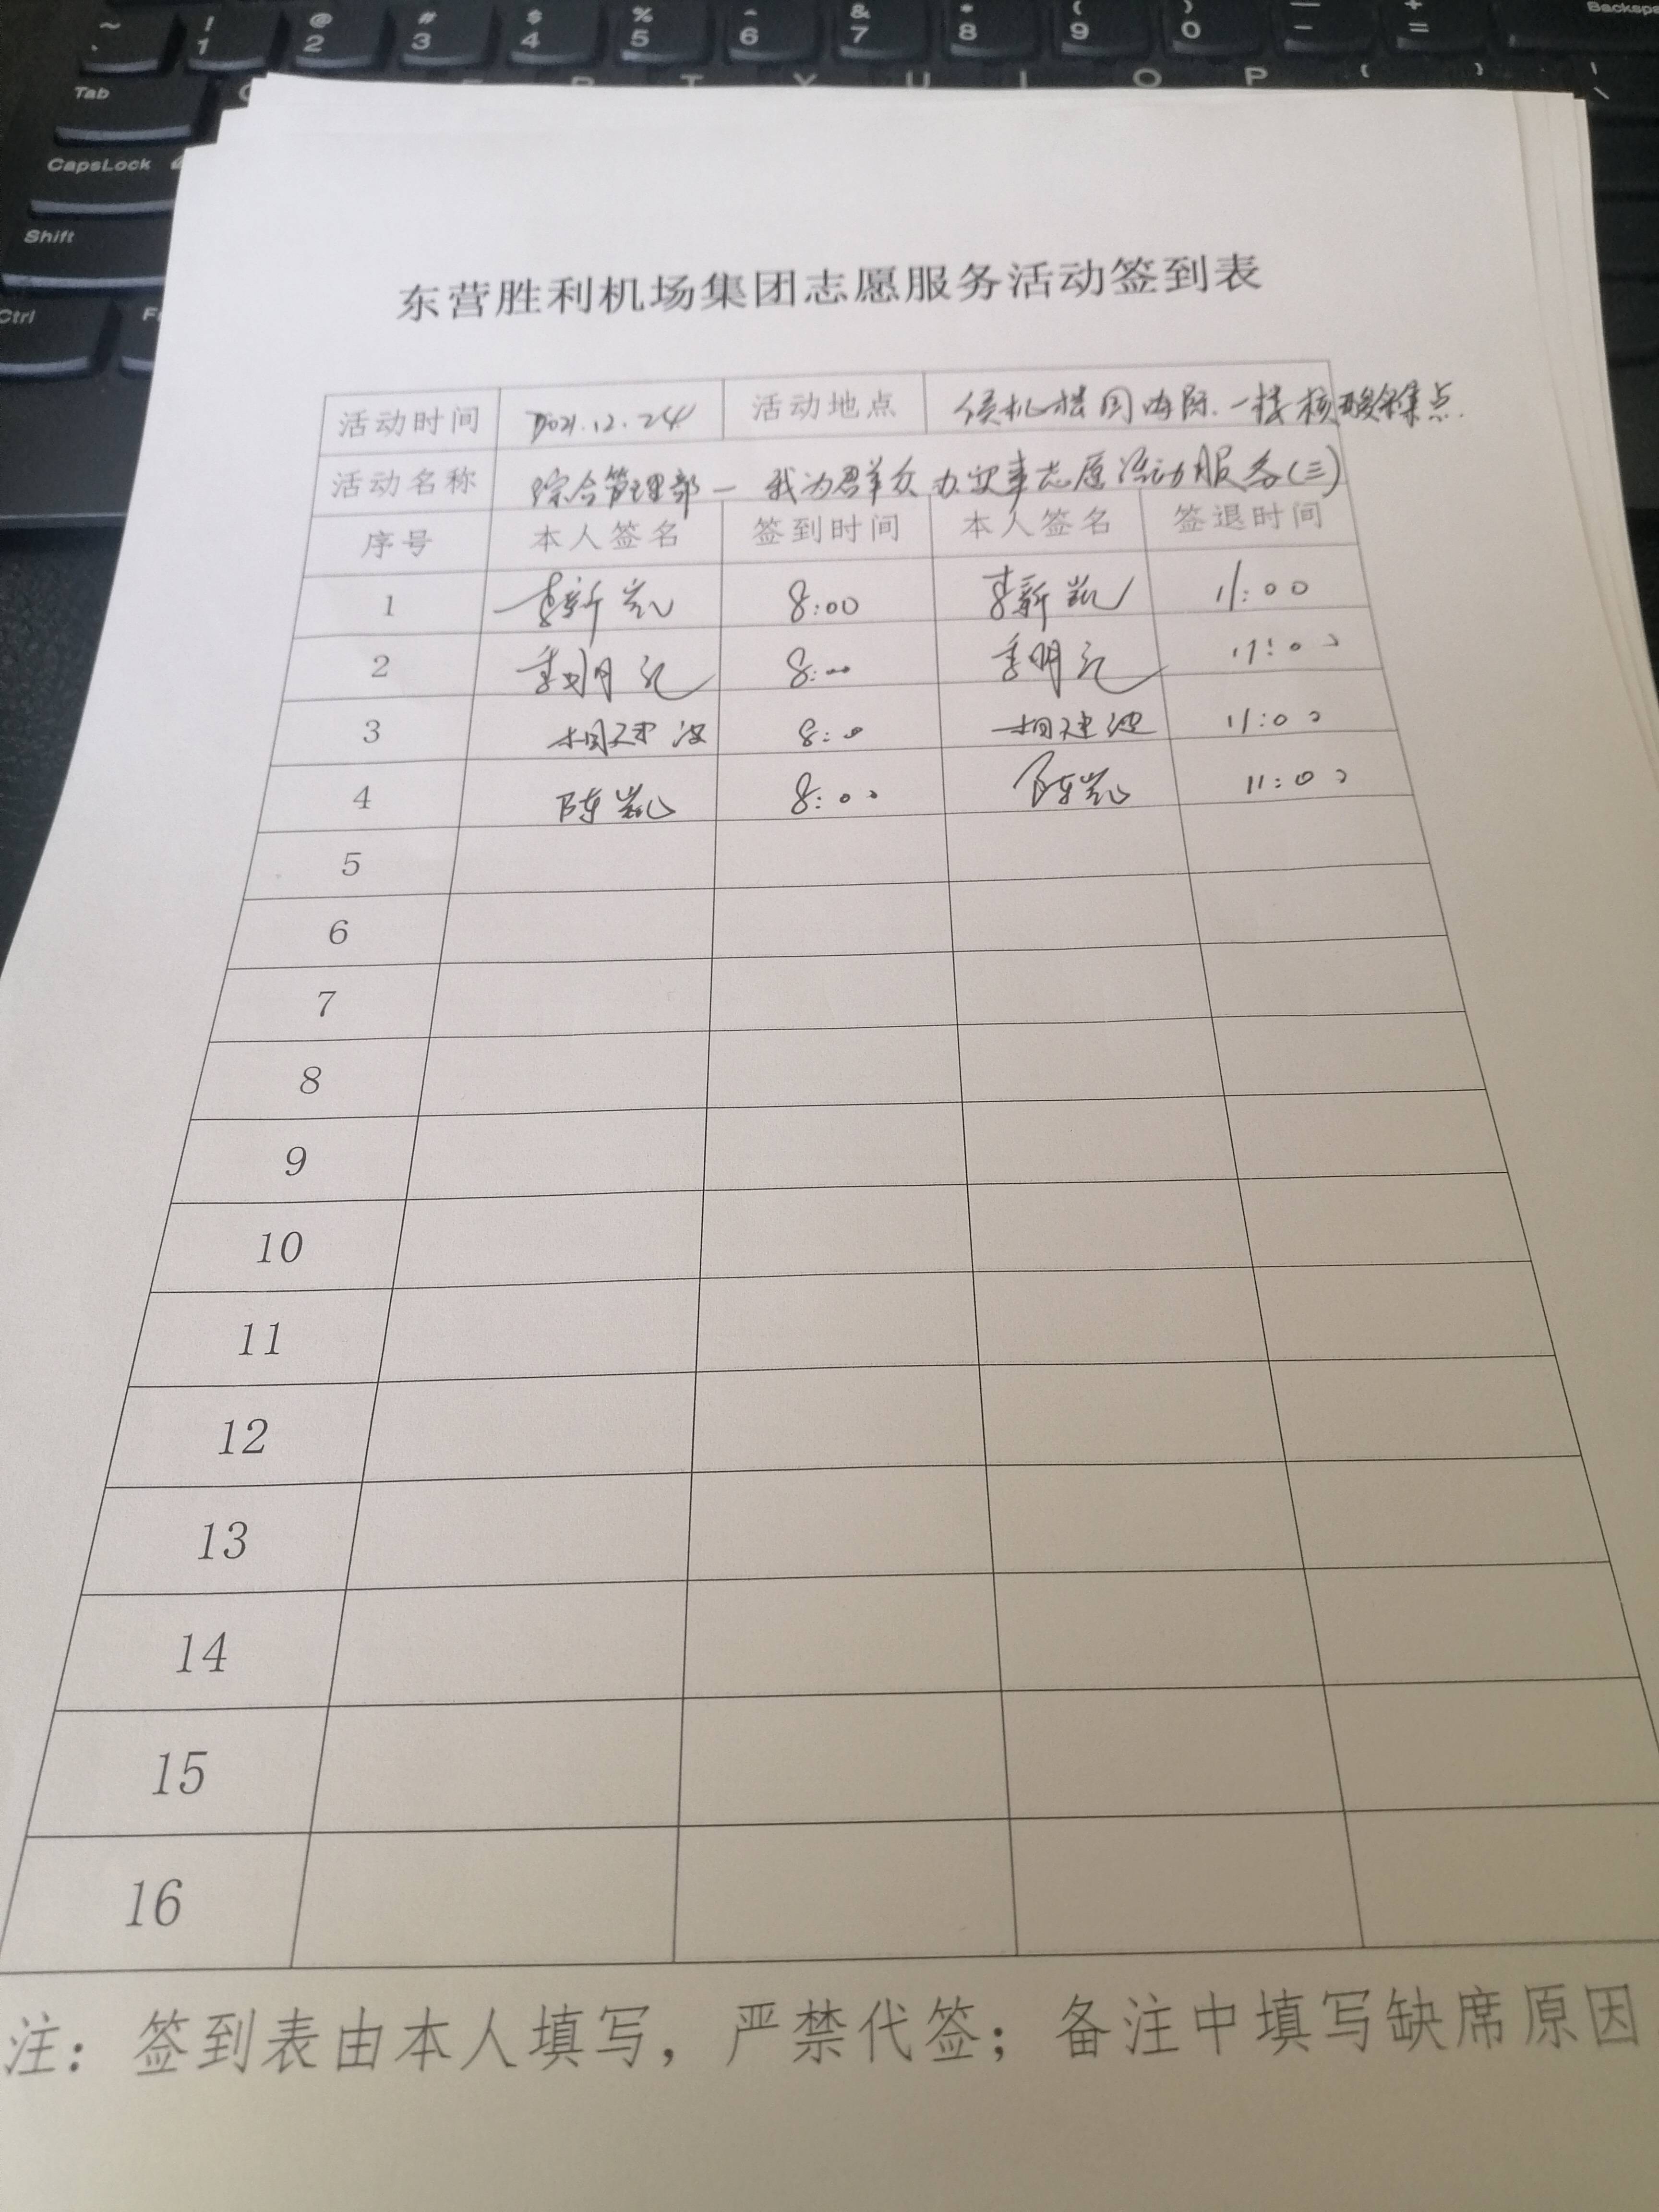 ~ ! @ # $ % ^ & * ( ) — + Backsp
` 1 2 3 4 5 6 7 8 9 0 - =
Tab T Y U I O P
CapsLock
Shift
Ctrl F
东营胜利机场集团志愿服务活动签到表
活动时间 2021.12.24 活动地点 候机楼国内 一楼核酸采集点
活动名称 综合管理部— 我为群众办实事志愿活动服务(三)
序号 本人签名 签到时间 本人签名 签退时间
1 李新凯 8:00 李新凯 11:00
2 季明 8:00 季明 11:00
3 相建波 8:00 相建波 11:00
4 陈凯 8:00 陈凯 11:00
5
6
7
8
9
10
11
12
13
14
15
16
注：签到表由本人填写，严禁代签；备注中填写缺席原因